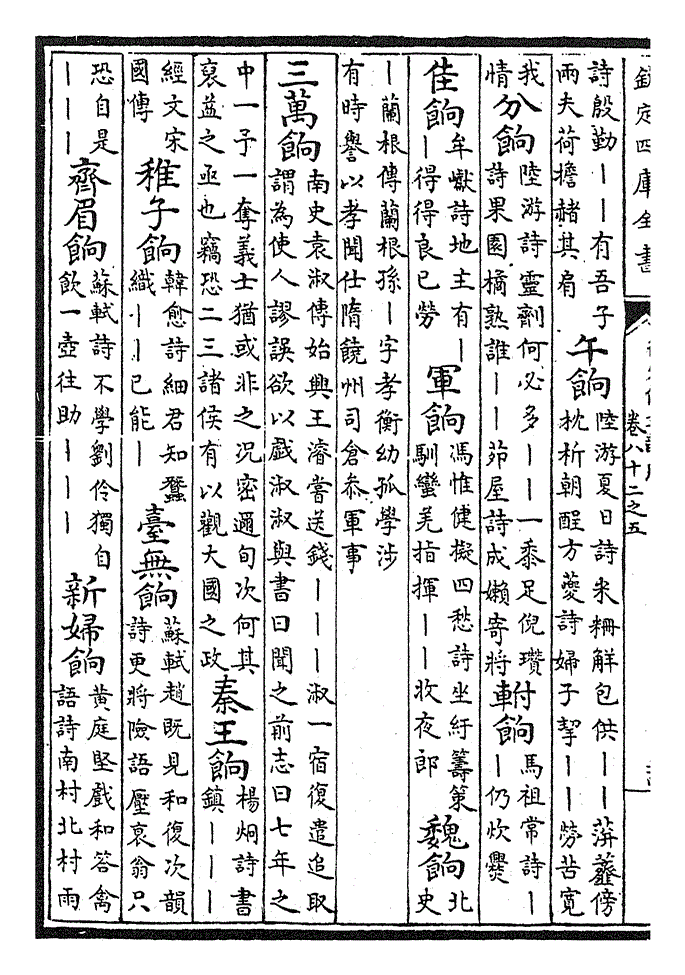 欽定四庫全書
卷八十二之五
詩殷勤丨丨有吾子
兩夫荷擔赭其肩
午餉
陸游夏日詩米粣解包供丨丨萍虀傍
枕析朝酲方夔詩婦子挈丨丨勞苦寬
我
情
分餉
陸游詩靈劑何必多丨丨一黍足倪瓚
詩果園橘熟誰丨丨茆屋詩成嬾寄將
軵餉
馬祖常詩丨
丨仍炊爨
佳餉
牟巘詩地主有丨
丨得得良已勞
軍餉
馮惟健擬四愁詩坐紆籌策
馴蠻羌指揮丨丨收夜郎
魏餉
北
史
丨蘭根傳蘭根孫丨字孝衡幼孤學涉
有時譽以孝聞仕隋饒州司倉叅軍事
三萬餉
南史袁淑傳始興王濬嘗送錢丨丨丨淑一宿復遣追取
謂為使人謬誤欲以戲淑淑與書曰聞之前志曰七年之
中一予一奪義士猶或非之況密邇旬次何其
裒益之亟也竊恐二三諸侯有以觀大國之政
秦王餉
楊炯詩書
鎮丨丨丨
經文宋
國傳
稚子餉
韓愈詩細君知蠶
織丨丨已能丨
臺無餉
蘇軾趙既見和復次韻
詩更將險語壓衰翁只
恐自是
丨丨丨
齊眉餉
蘇軾詩不學劉伶獨自
飲一壺往助丨丨丨
新婦餉
黃庭堅戲和答禽
語詩南村北村雨